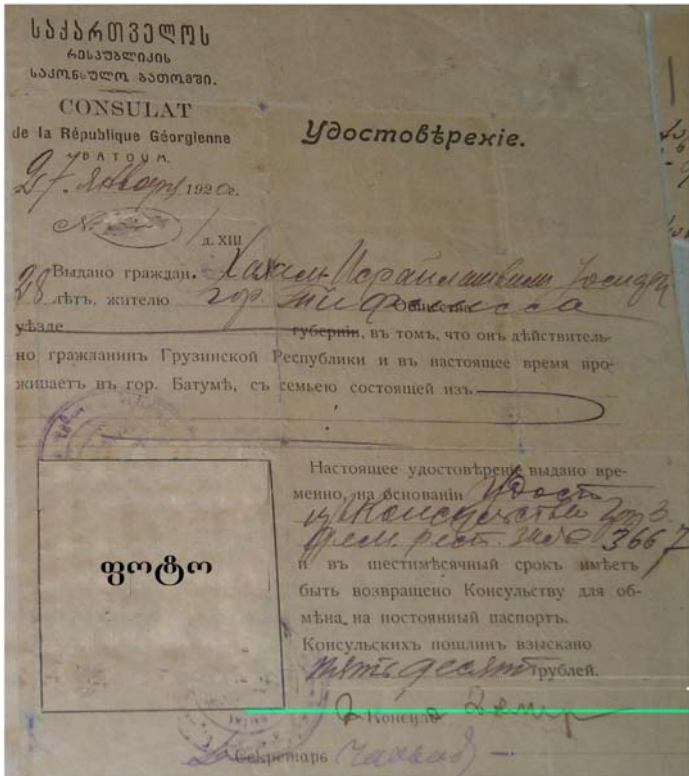 ᲡᲐᲥᲐᲠᲗᲕᲔᲚᲝᲡ
ᲠᲔᲡᲞᲣᲑᲚᲘᲙᲘᲡ
ᲡᲐᲙᲝᲜᲡᲣᲚᲝ ᲑᲐᲗᲝᲛᲨᲘ.
CONSULAT
de la République Géorgienne
BATOUM.
Удостовѣреніе.
27. января 1920г.
№ / д. XIII
Выдано граждан.
28 лѣтъ, жителю гор. Тифлисса Общества
уѣзде губерніи, въ томъ, что онъ дѣйствитель-
но гражданинъ Грузинской Республики и въ настоящее время про-
живаетъ въ гор. Батумѣ, съ семьею состоящей изъ
Настоящее удостовѣреніе выдано вре-
менно, на основаніи Удост
3667
и въ шестимѣсячный срокъ имѣетъ
быть возвращено Консульству для об-
мѣна на постоянный паспортъ.
Консульскихъ пошлинъ взыскано
пятьдесят рублей.
Консулъ
Секретарь
ფოტო